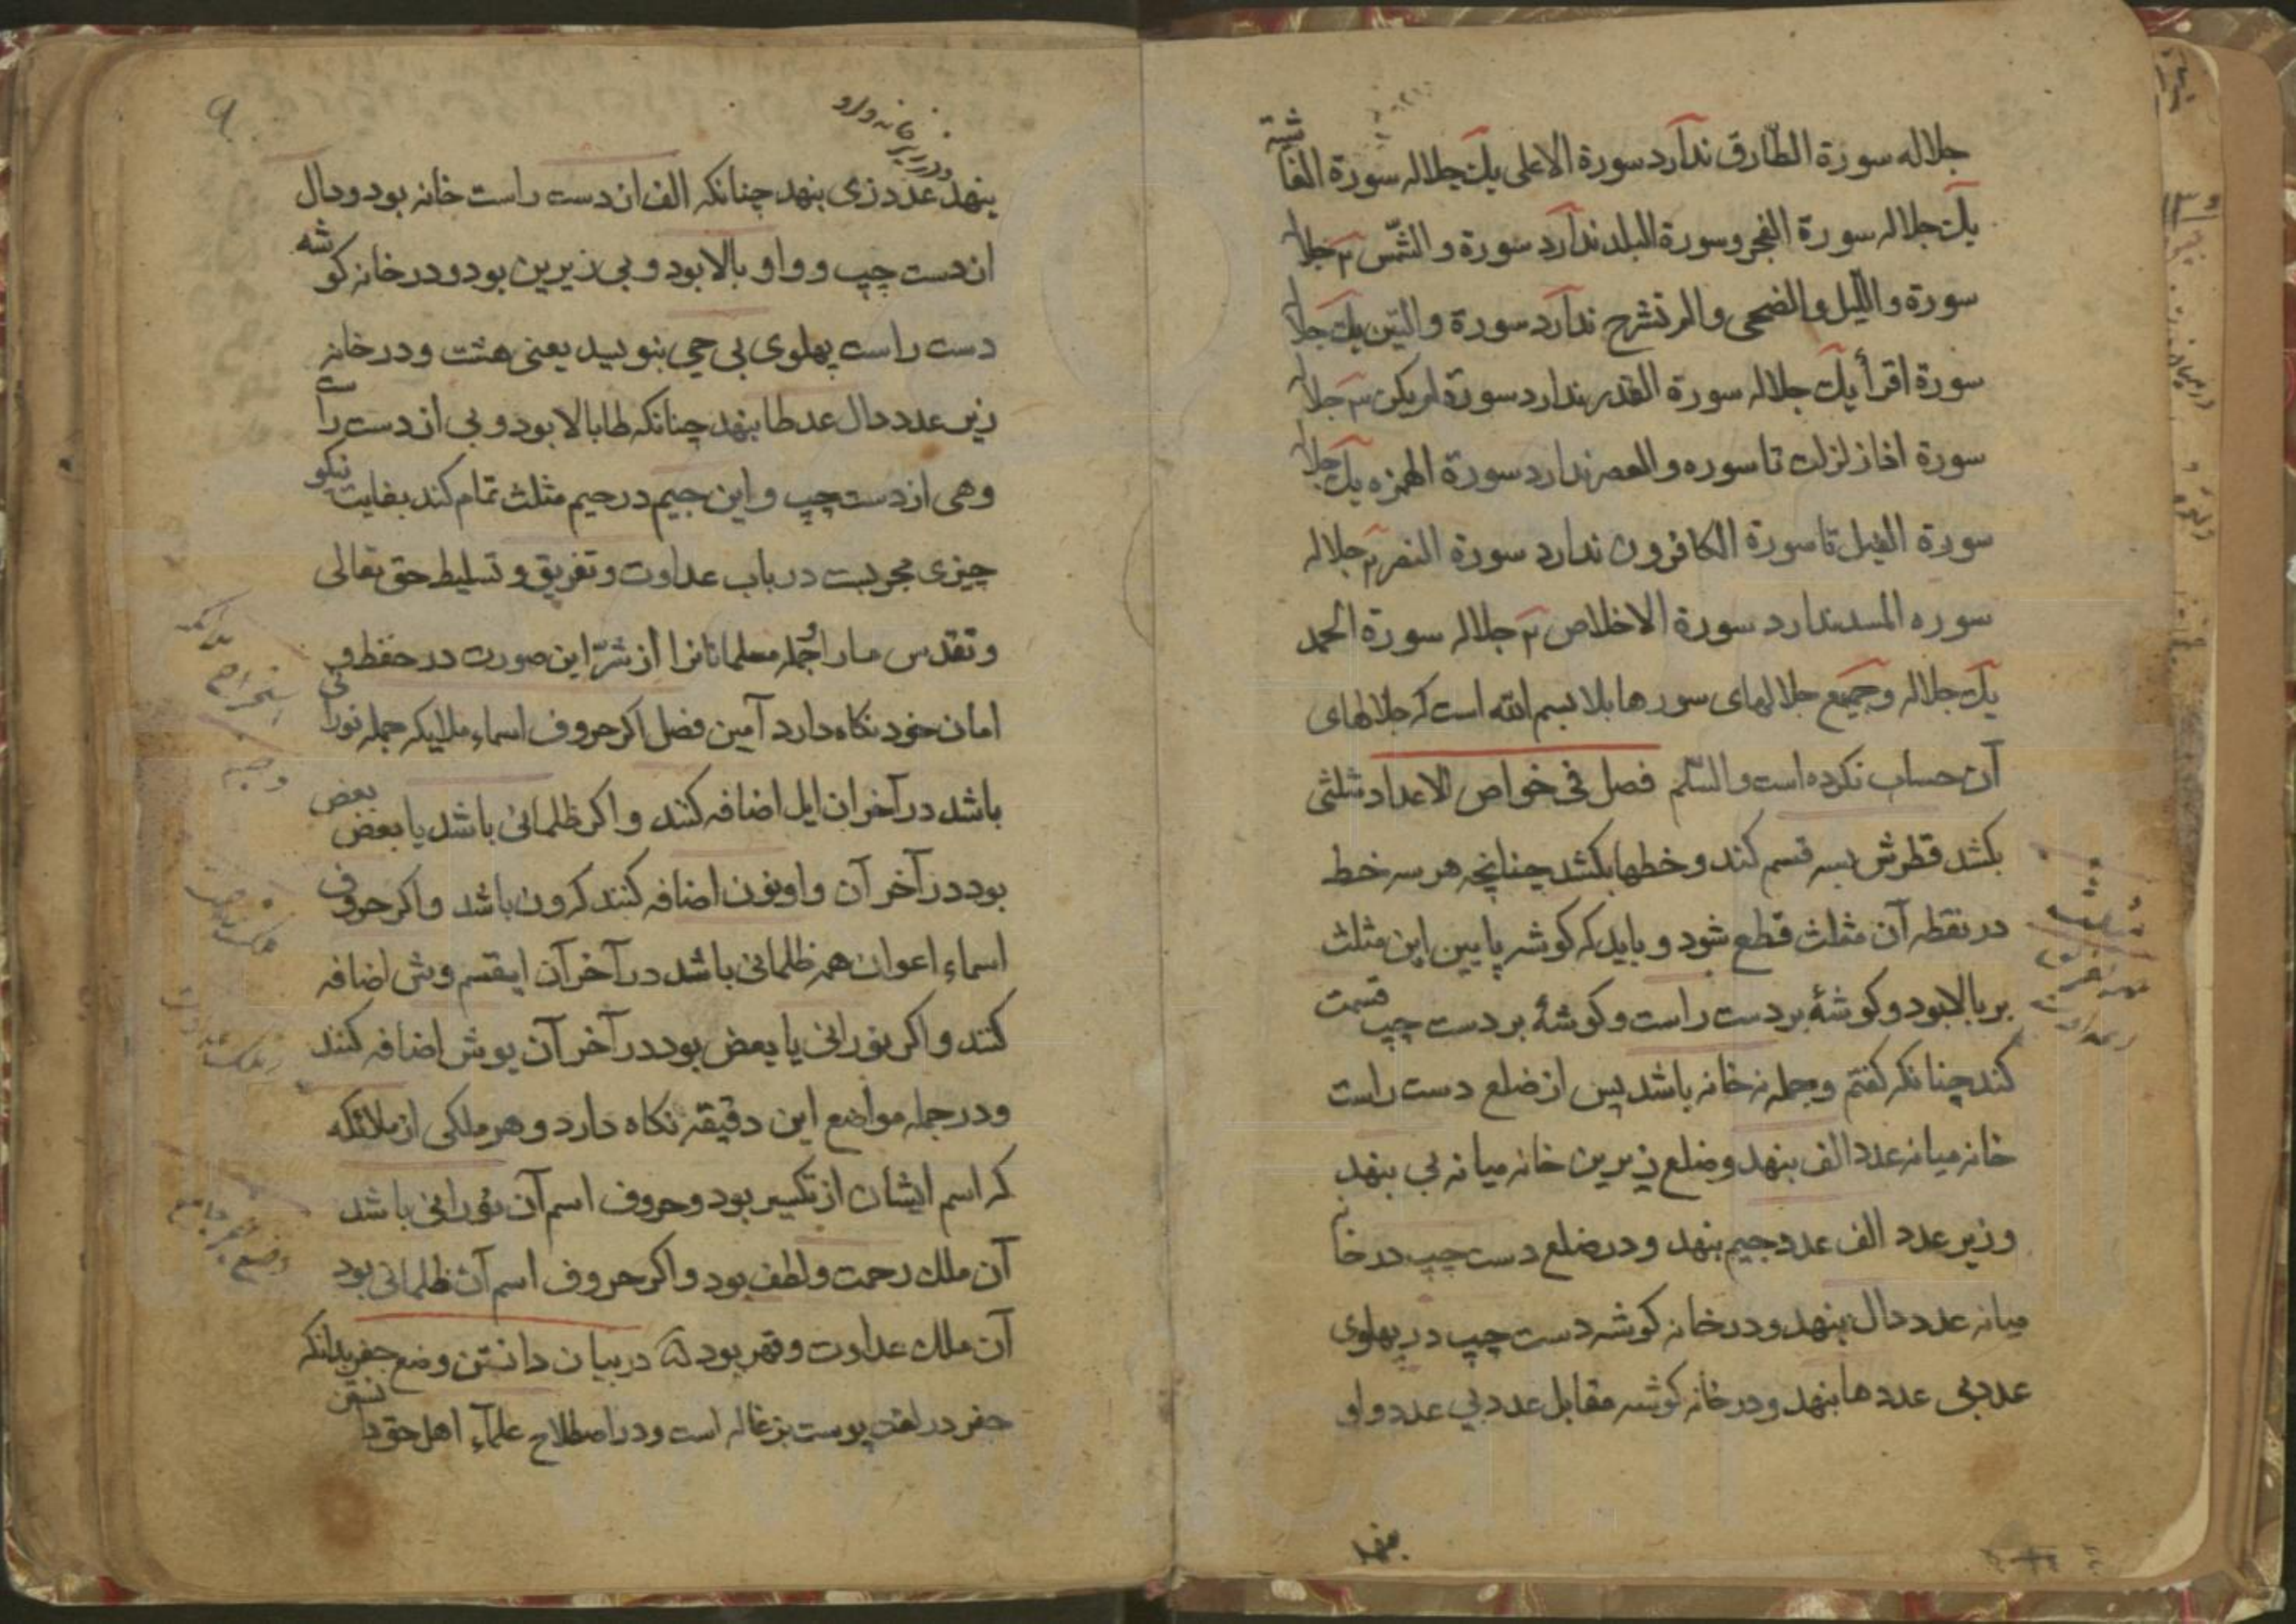 جلاله سورة الطّارق ندارد سورة الاعلی یك جلاله سورة الغاشیة
یك جلاله سورة الفجر وسورة البلد ندارد سورة والشّمس ۲ جلا
سورة واللّیل والضحی والم نشرح ندارد سورة والتین یك جلا
سورة اقرأ یك جلاله سورة القدر ندارد سورة لم یکن ۳ جلا
سورة اذا زلزلت تا سوره والعصر ندارد سورة الهمزه یك جلا
سورة الفیل تا سورة الکافرون ندارد سورة النصر ۲ جلاله
سوره المسد ندارد سورة الاخلاص ۲ جلاله سورة الحمد
یك جلاله وجمیع جلالهای سورها بلا بسم الله است که جلالهای
آن حساب نکرده است والسّلم فصل فی خواص الاعداد مثلثی
بکشد قطرش بسه قسم کند و خطها بکشد چنانچه هر سه خط
در نقطه آن مثلث قطع شود و باید که کوشه پایین این مثلث
بر بالا بود و کوشهٔ بر دست راست و کوشهٔ بر دست چپ قسمت
کند چنانکه کفتم و جمله نه خانه باشد پس از ضلع دست راست
خانه میانه عدد الف بنهد و ضلع زیرین خانه میانه بی بنهد
و زیر عدد الف عدد جیم بنهد و در ضلع دست چپ در خانه
میانه عدد دال بنهد و در خانه کوشه دست چپ در پهلوی
عدد بی عدد ها بنهد و در خانه کوشه مقابل عدد بی عدد واو
بنهد
۹
و در زیر خانه واو
بنهد عدد زی بنهد چنانکه الف از دست راست خانه بود و دال
از دست چپ و واو بالا بود و بی زیرین بود و در خانه کوشه
دست راست پهلوی بی حی بنویسد یعنی هشت و در خانه
زیر عدد دال عدد طا بنهد چنانکه طا بالا بود و بی از دست راست
وهی از دست چپ و این جیم در جیم مثلث تمام کند بغایت نیکو
چیزی مجربست در باب عداوت و تفریق و تسلیط حق تعالی
و تقدس ما را و جمله مسلمانانرا از شرّ این صورت در حفظ و
امان خود نکاه دارد آمین فصل اکر حروف اسماء ملایکه جمله نورانی
باشد در آخر ان ایل اضافه کنند و اکر ظلمانی باشد یا بعض بعض
بود در آخر آن واو و نون اضافه کنند که رون باشد و اکر حروف
اسماء اعوان همه ظلمانی باشد در آخر آن ایقسم وش اضافه
کنند و اکر نورانی یا بعض بود در آخر آن یوش اضافه کنند
و در جمله مواضع این دقیقه نکاه دارد و هر ملکی از ملائکه
که اسم ایشان از تکسیر بود و حروف اسم آن نورانی باشد
آن ملك رحمت و لطف بود و اکر حروف اسم آن ظلمانی بود
آن ملك عداوت و قهر بود در بیان دانستن وضع جفر بدانکه
جفر در لغت پوست بزغاله است و در اصطلاح علمآء اهل حق دانستن